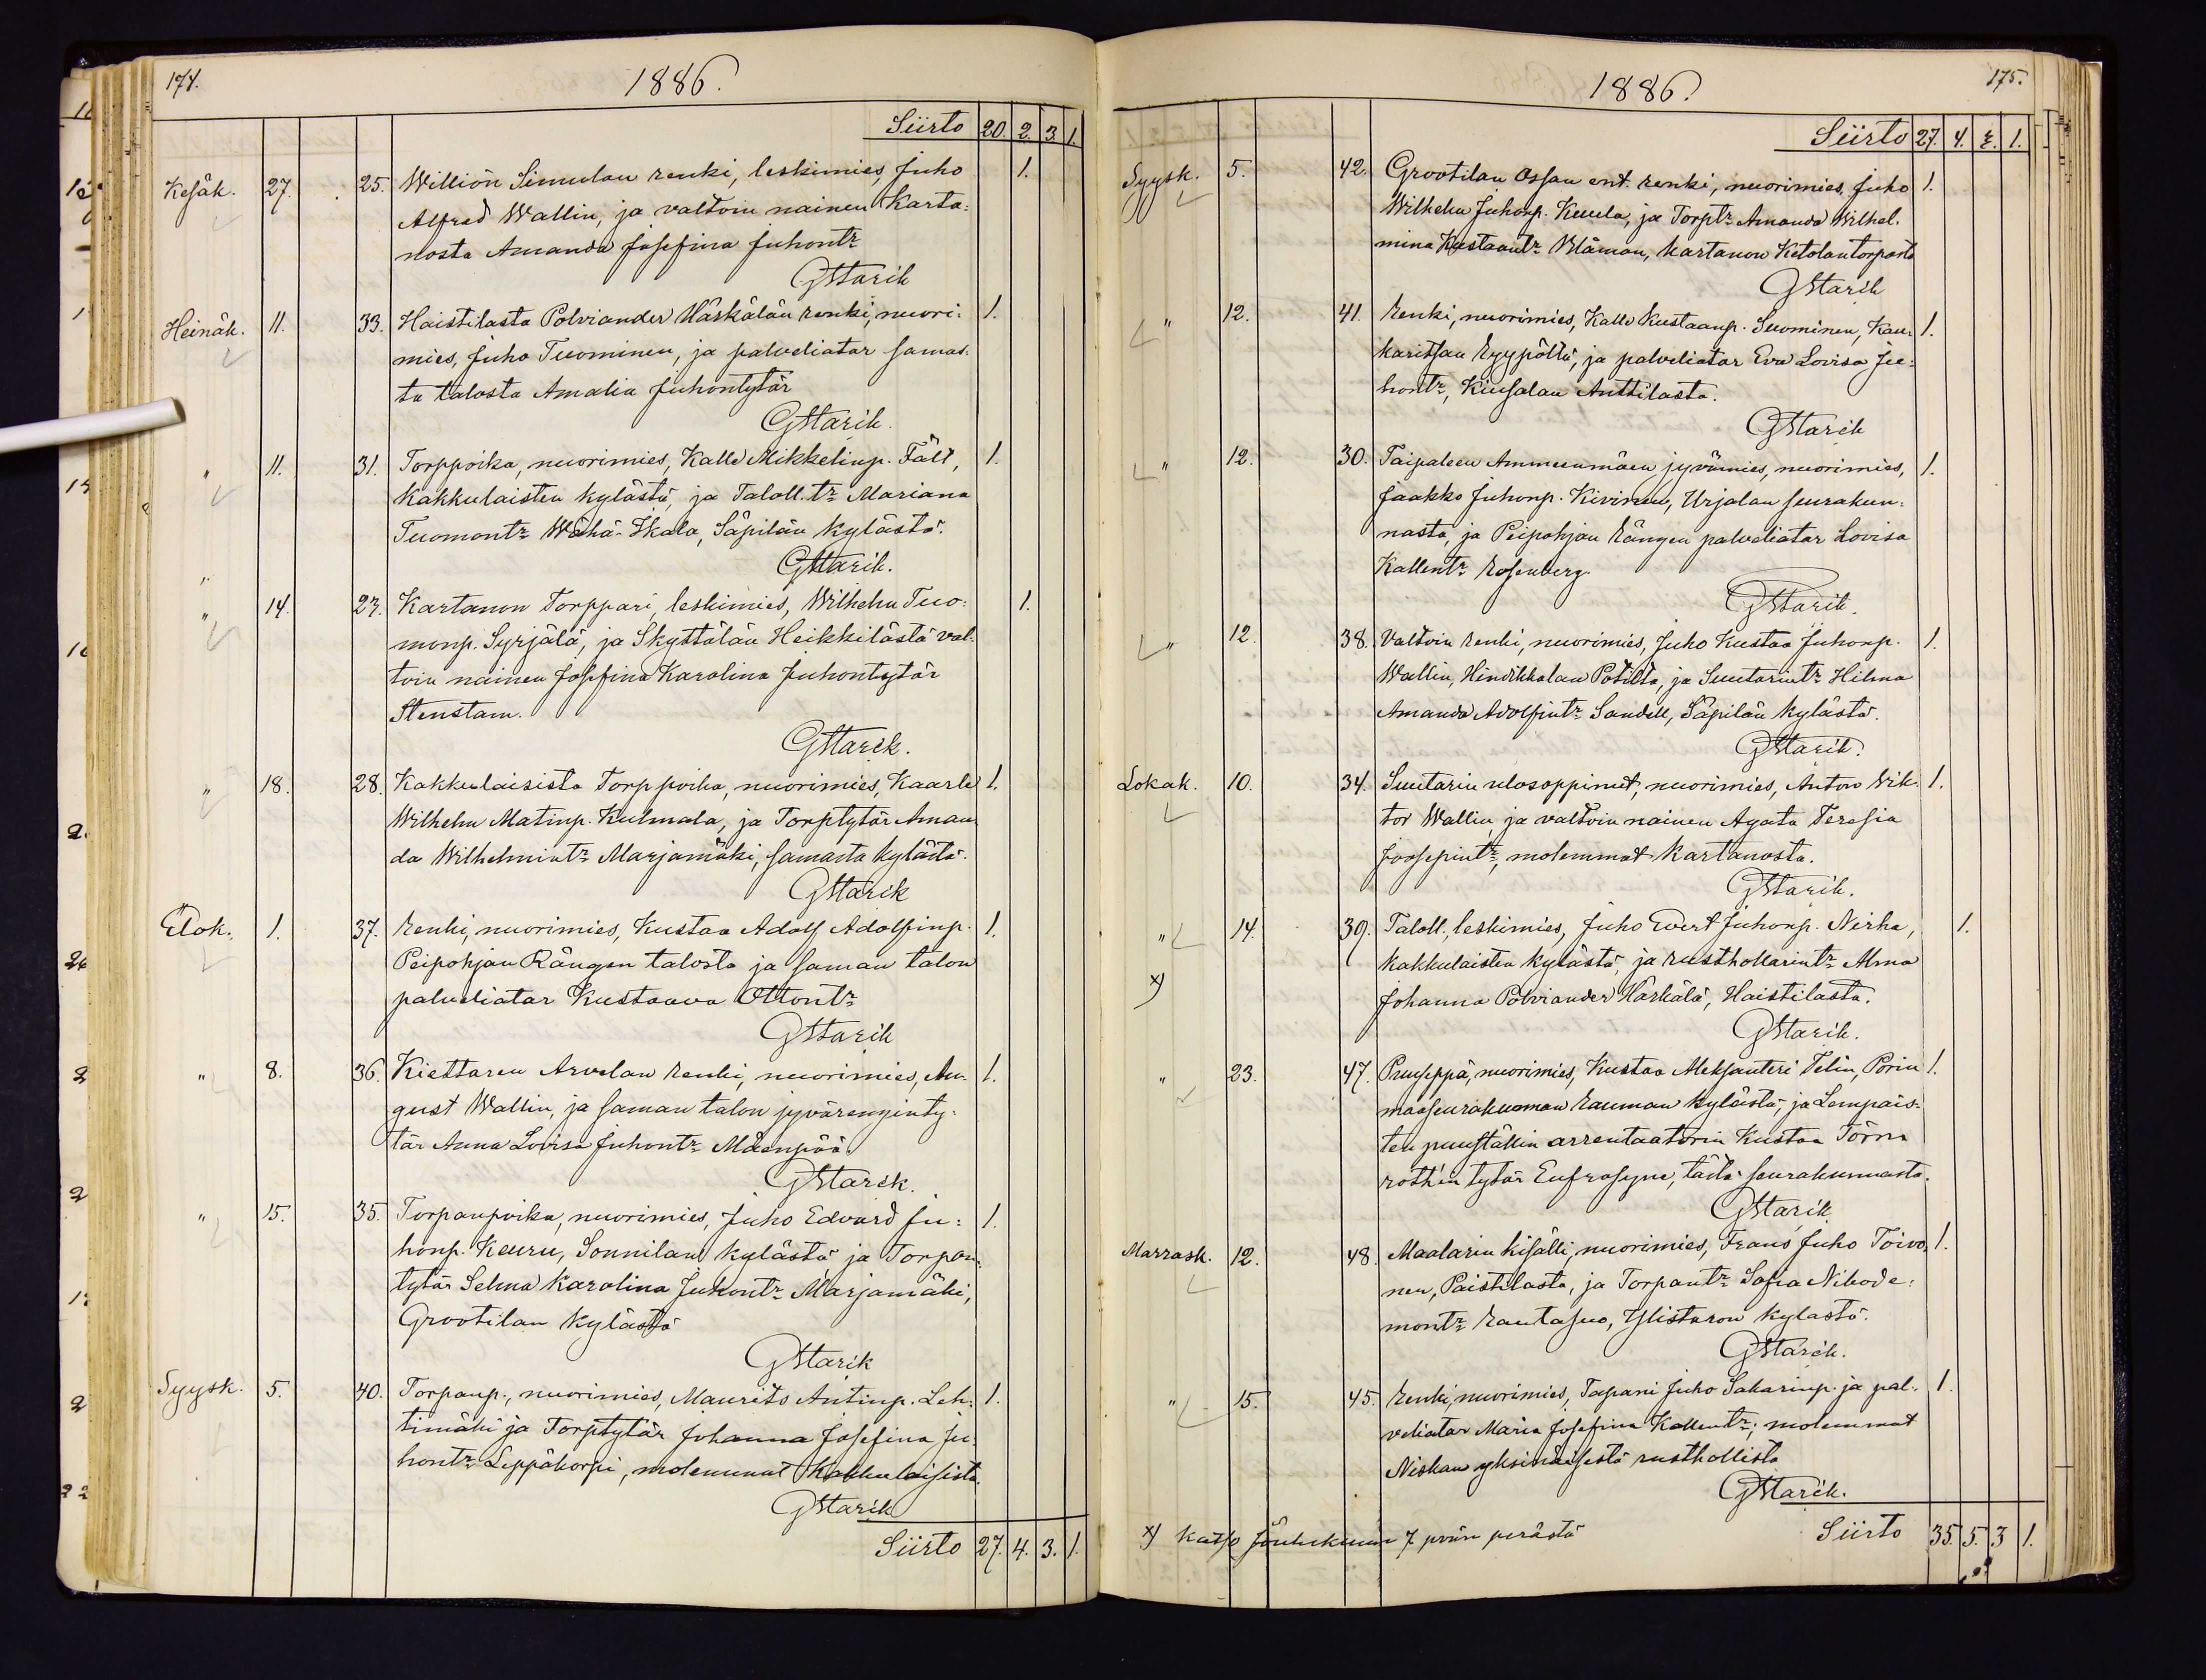 174.
1886.
Siirto 20. 2. 3. 1.
Kesäk. 27. 25. Williön Simulan renki, leskimies, Juho 1.
Alfred Wallin, ja valtoin nainen Karta-
nosta Amanda Josefina Juhontr
GStarck
Heinäk. 11. 33. Haistilasta Polviander Härkälän renki, nuori- 1.
mies, Juho Tuominen, ja palveliatar samas-
ta talosta Amalia Juhontytär
GStarck.
" 11. 31. Torppoika, nuorimies, Kalle Mikkelinp. Fält, 1.
Kakkulaisten kylästä, ja Taloll. tr Mariana
Tuomontr Wähä-Skala, Säpilän kylästä.
GStarck.
" 14. 27. Kartanon Torppari, leskimies, Wilhelm Tuo- 1.
monp. Syrjälä, ja Skyttälän Heikkilästä val-
toin nainen Josefina Karolina Juhontytär
Stenstam.
GStarck.
" 18. 28. Kakkulaisista Torppoika, nuorimies, Kaarle 1.
Wilhelm Matinp. Kulmala, ja Torptytär Aman-
da Wilhelmintr Marjamäki, samasta kylästä.
GStarck
Elok. 1. 37. Renki, nuorimies, Kustaa Adolf Adolfinp. 1.
Peipohjan Rängen talosta ja saman talon
palveliatar Kustaava Ottontr
GStarck
" 8. 36. Kiettaren Arvelan renki, nuorimies, Au- 1.
gust Wallin, ja saman talon jyvärenginty-
tär Anna Lovisa Juhontr Mäenpää.
GStarck.
" 15. 35. Torpanpoika, nuorimies, Juho Edvard Ju- 1.
honp. Keuru, Sonnilan kylästä ja Torpan-
tytär Selma Karolina Juhontr Marjamäki,
Grootilan kylästä
GStarck
Syysk. 5. 40. Torpanp., nuorimies, Maurits Antinp. Leh- 1.
timäki ja Torptytär Johanna Josefina Ju-
hontr Leppäkorpi, molemmat Kakkulaisista.
GStarck
Siirto 27. 4. 3. 1.
175.
1886.
Siirto 27. 4. 3. 1.
Syysk. 5. 42. Grootilan Ossan ent. renki, nuorimies, Juho 1.
Wilhelm Juhonp. Kuula, ja Torptr Amanda Wilhel-
mina Kustaantr Blåman, Kartanon Ketolantorpasta
GStarck
" 12. 41. Renki, nuorimies, Kalle Kustaanp. Suominen, Kau- 1.
karitsan Ryypöltä, ja palveliatar Eva Lovisa Ju-
hontr, Kiusalan Anttilasta.
GStarck
" 12. 30. Taipaleen Ammeenmäen jyvämies, nuorimies, 1.
Jaakko Juhonp. Kivinen, Urjalan seurakun-
nasta, ja Peipohjan Rängen palveliatar Lovisa
Kallentr Rosenberg.
GStarck.
" 12. 38. Valtoin renki, nuorimies, Juho Kustaa Juhonp. 1.
Wallin, Hindikkalan Potilta, ja Suutarintr Hilma
Amanda Adolfintr Sandell, Säpilän kylästä.
GStarck.
Lokak. 10. 34. Suutarin ulosoppinut, nuorimies, Anton Wik- 1.
tor Wallin, ja valtoin nainen Agata Teresia
Joosepintr, molemmat Kartanosta.
GStarck.
" 14. 39. Taloll., leskimies, Juho Evert Juhonp. Nirha, 1.
x) Kakkulaisten kylästä, ja rusthollarintr Alma
Johanna Polviander Härkälä, Haistilasta.
GStarck.
" 23. 47. Puuseppä, nuorimies, Kustaa Aleksanteri Telin, Porin 1.
maaseurakunnan Rauman kylästä, ja Lempäis-
ten puuställin arrentaatorin Kustaa Törn-
roth'in tytär Eufrosyne, tästä seurakunnasta.
GStarck
Marrask. 12. 48. Maalarin kisälli, nuorimies, Frans Juho Toivo- 1.
nen, Paistilasta, ja Torpantr Sofia Nikode-
montr Rautasuo, Ylistaron kylästä.
GStarck.
" 15. 45. Renki, nuorimies, Tapani Juho Sakarinp. ja pal- 1.
veliatar Maria Josefina Kallentr; molemmat
Niskan yksinäisestä rusthollista
GStarck.
x) Katso Joulukuun 7 päivän perästä
Siirto 35. 5. 3 1.